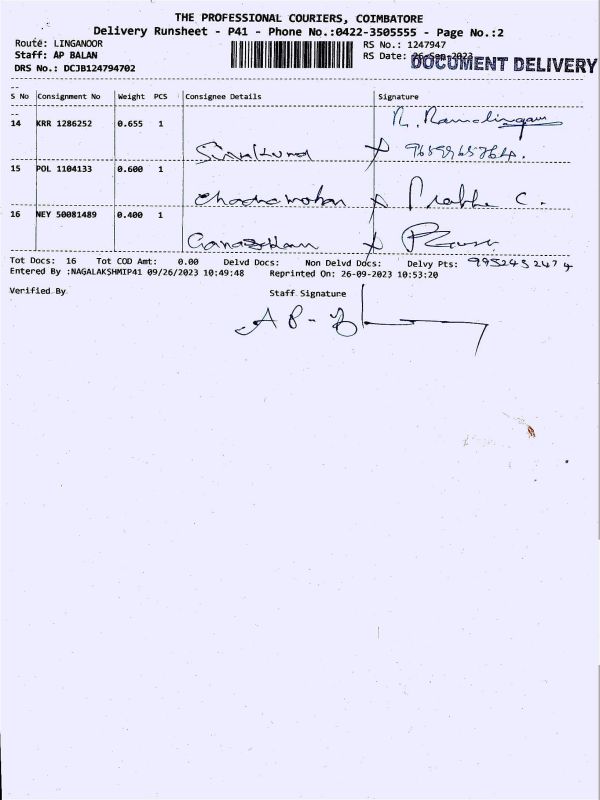 THE PROFESSIONAL COURIERS, COIMBATORE
Delivery Runsheet - P41 - Phone No.:0422-3505555 - Page No.:2
Route: LINGANOOR
Staff: AP BALAN
DRS No.: DCJB124794702
RS No.: 1247947
RS Date: 26-Sep-2023
DOCUMENT DELIVERY
S No Consignment No Weight PCS Consignee Details Signature
14 KRR 1286252 0.655 1 R. Ramalingam
15 POL 1104133 0.600 1 Chandramohan Prabhu C.
16 NEY 50081489 0.400 1
Tot Docs: 16 Tot COD Amt: 0.00 Delvd Docs: Non Delvd Docs: Delvy Pts: 9952452474
Entered By :NAGALAKSHMIP41 09/26/2023 10:49:48 Reprinted On: 26-09-2023 10:53:20
Verified By Staff Signature